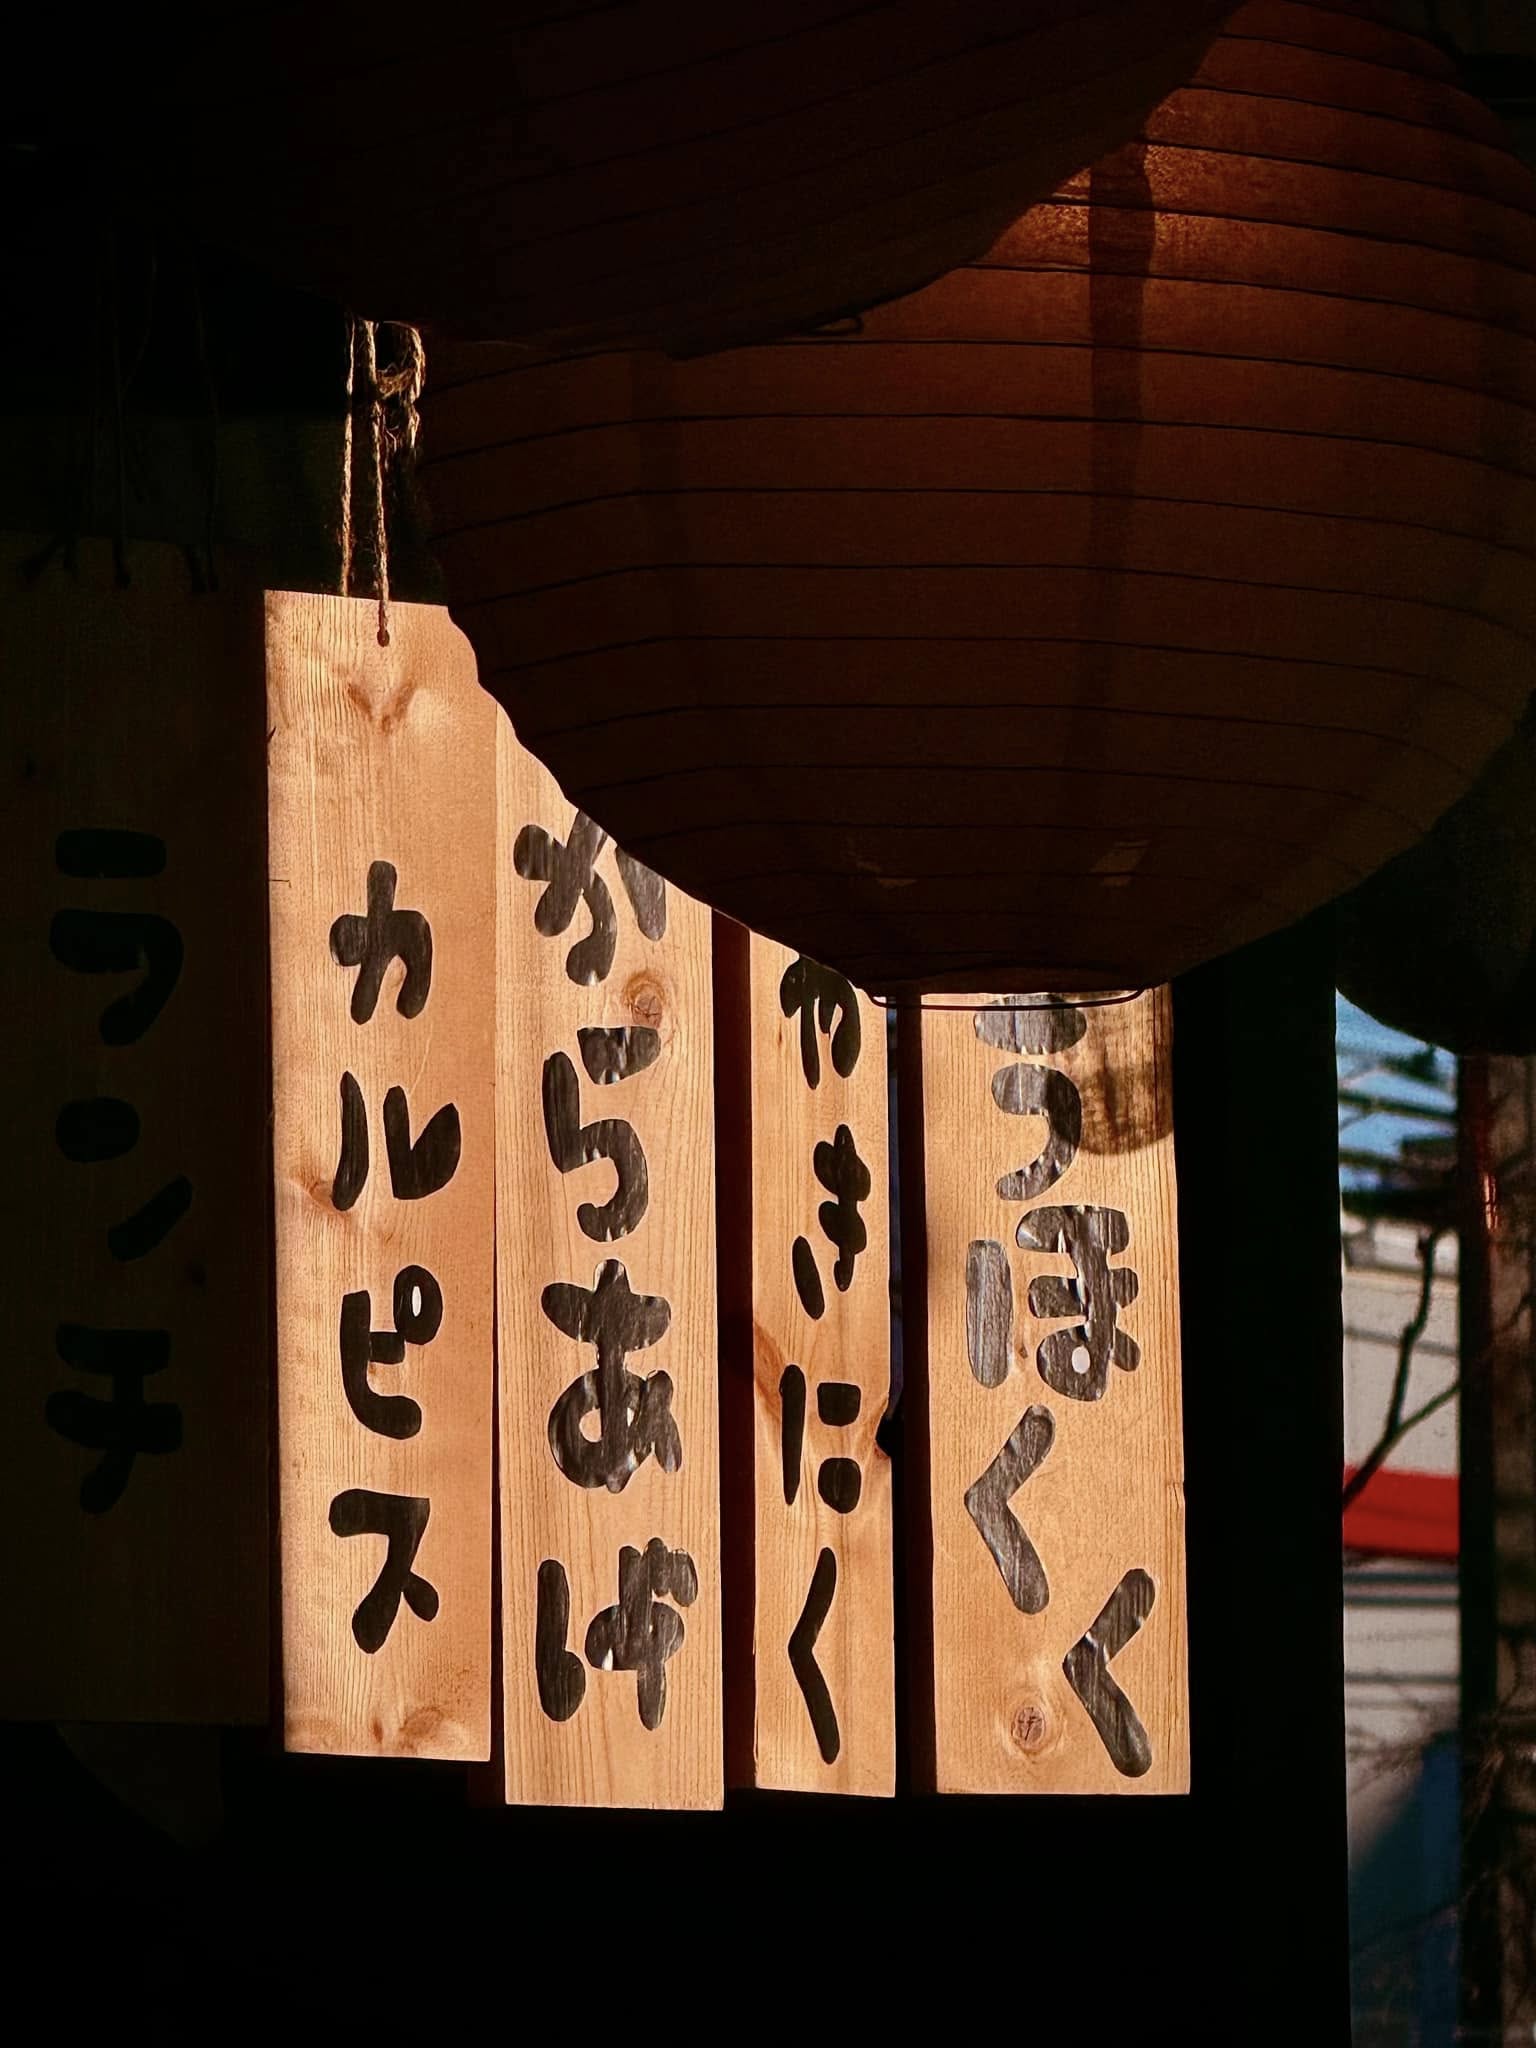 うほくく
やきにく
からあげ
カルピス
ランチ